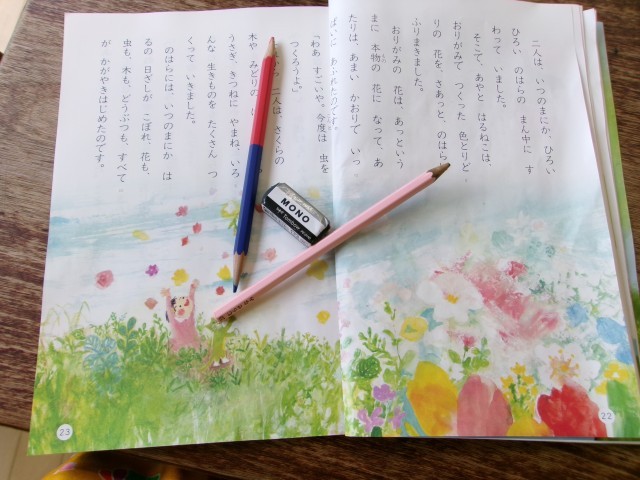 二人は、いつのまにか、ひろい
ひろい のはらの まん中に す
わって いました。
そこで、あやと はるねこは、
おりがみで つくった 色とりど
りの 花を、さあっと、のはら
ふりまきました。
おりがみの 花は、あっという
まに 本物の 花に なって、あ
たりは、あまい かおりで いっ
ぱいに あふれたのです。
22
「わあ すごいや。今度は 虫を
つくろうよ。」
二人は、さくらの
木や みどりの
うさぎ、きつねに やまね、いろ
んな 生きものを たくさん つ
くって いきました。
のはらには、いつのまにか は
るの 日ざしが こぼれ、花も、
虫も、木も、どうぶつも、すべて
が かがやきはじめたのです。
23
MONO